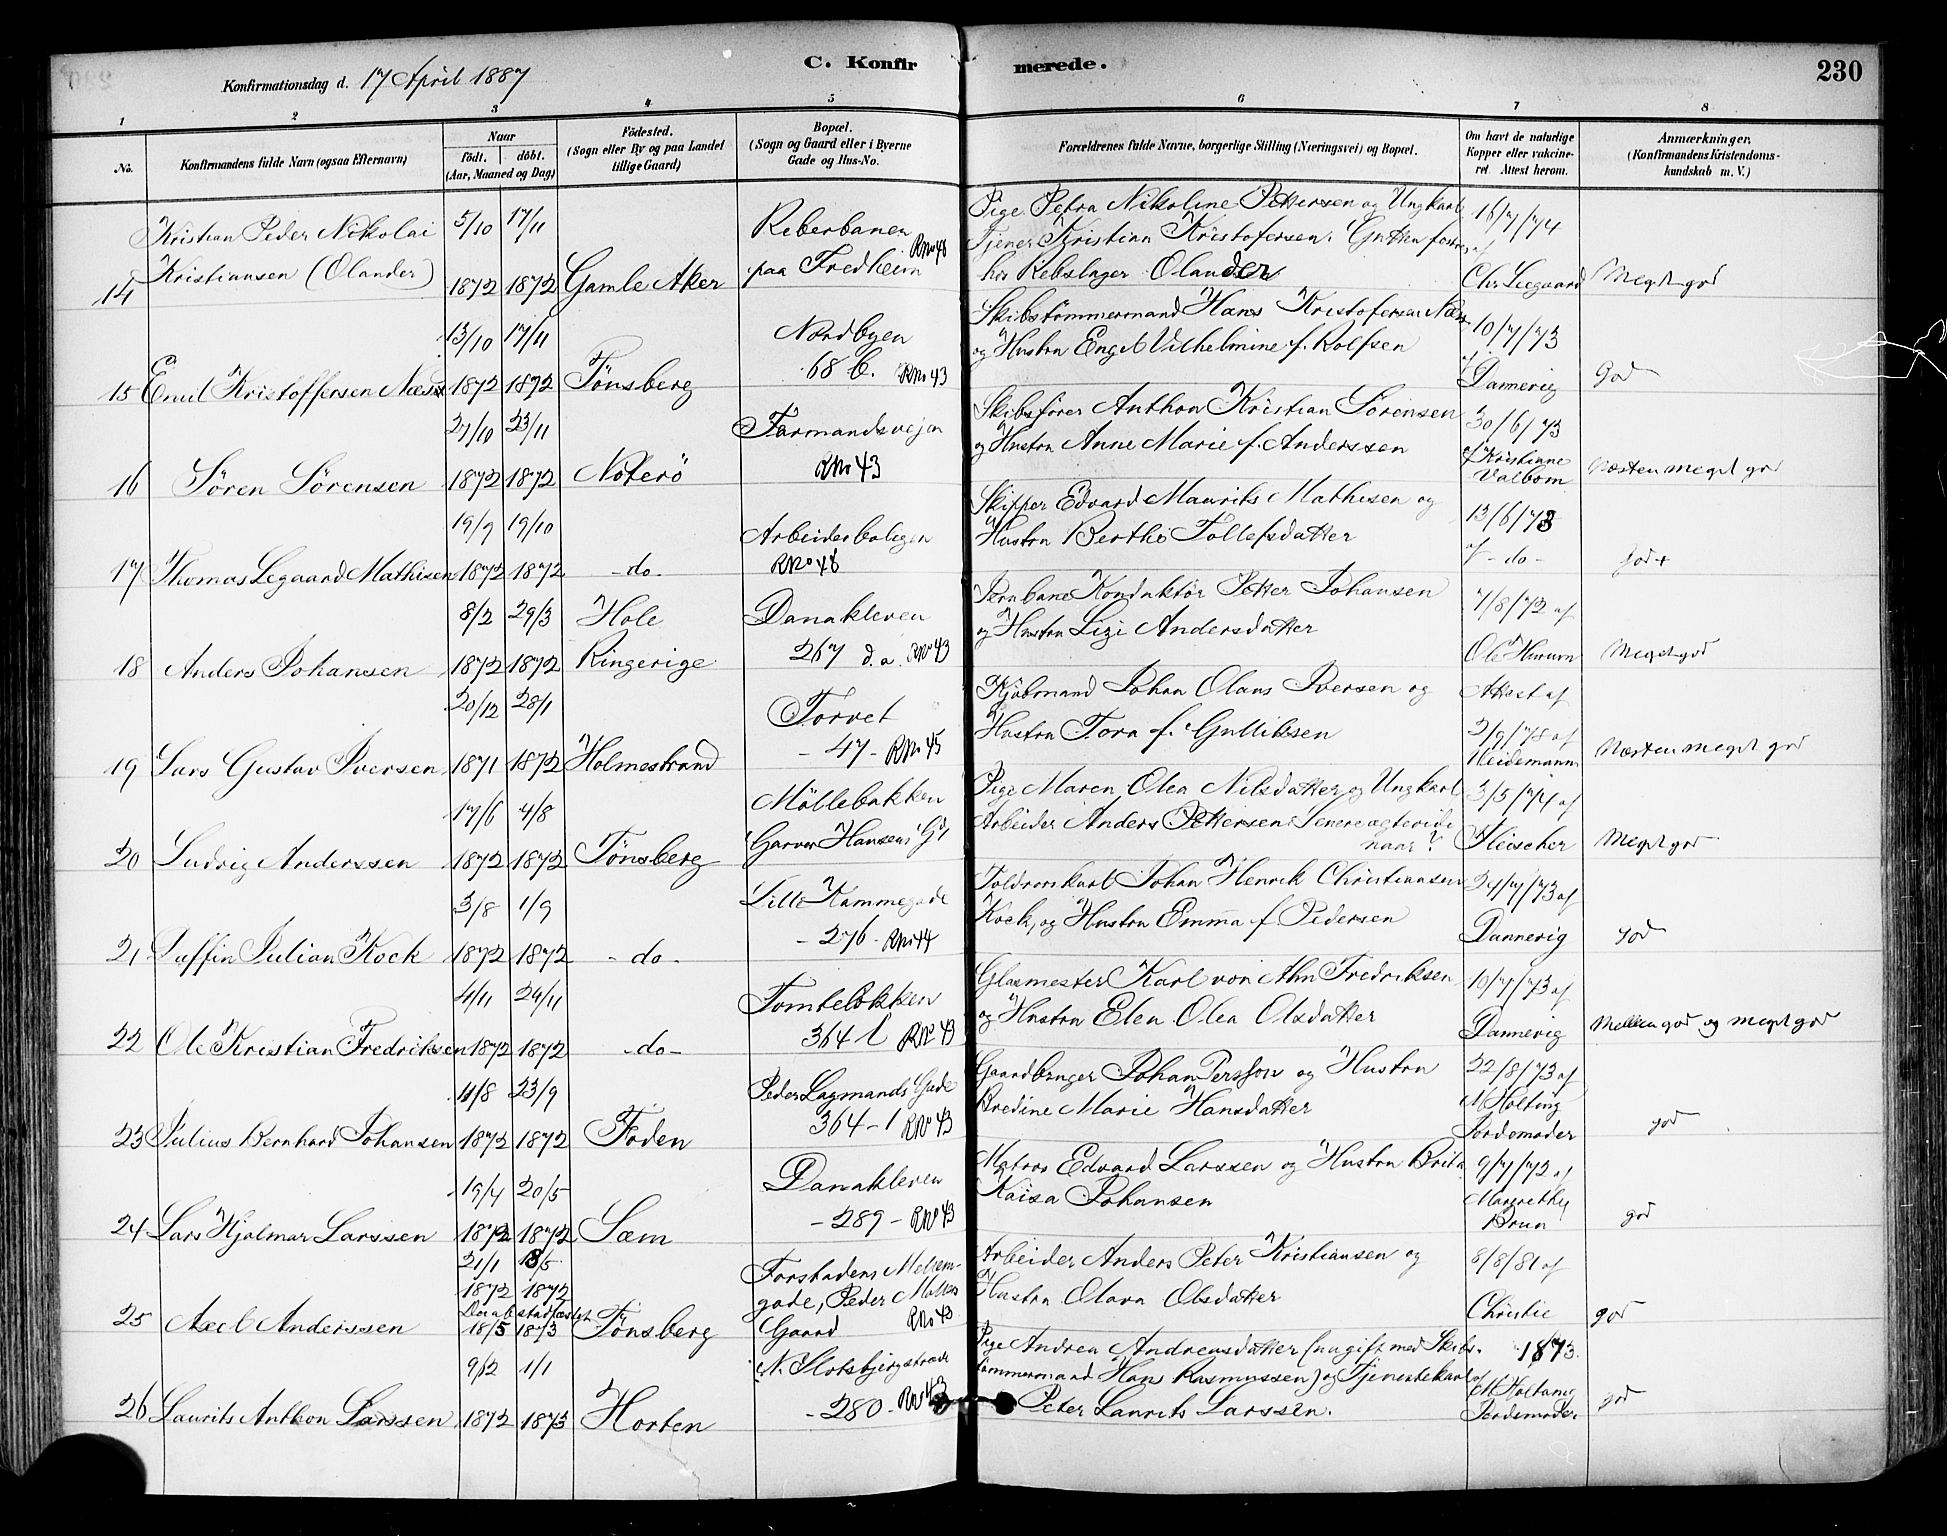 C. Konfirmerede.
230
Konfirmationsdag d. 17 April 1887
1 2 3 4 5 6 7 8
No.
Konfirmandens fulde Navn (ogsaa Efternavn)
Naar
født. døbt.
(Aar, Maaned og Dag)
Fødested.
(Sogn eller By og paa Landet
tillige Gaard)
Bopæl.
(Sogn og Gaard eller i Byerne
Gade og Hus-No.
Forældrenes fulde Navne, borgerlige Stilling (Næringsvei) og Bopæl.
Om havt de naturlige
Kopper eller vakcineret
Attest herom.
Anmærkninger.
(Konfirmandens Kristendomskundskab
m. V.)
14 Kristian Peder Nikolai
Kristiansen (Olander)
5/10 17/11
1872 1872
Gamle Aker
Reberbanen
paa Fredheim RNo 48
Pige Petra Nikoline Pettersen og Ungkarl
Tjener Kristian Kristofersen. Gutten
hos Rebslager Olander
16/7/74
af
Chr Leegaard
Meget god
15 Emil Kristoffersen Næss
13/10 17/11
1872 1872
Tønsberg
Nordbyen
68 b. RNo 43
Skibstømmermand Hans Kristofersen Næss
og Hustru Engel Vilhelmine f. Rolfsen
10/7/73
af
Dannevig
God
16 Søren Sørensen
27/10 23/11
1872 1872
Noterö
Farmandsvejen
RNo 43
Skibsfører Anthon Kristian Sørensen
og Hustru Anne Marie f. Anderssen
30/6/73
af Kristiane
Valbom
Næsten meget god
17 Thomas Legaard Mathisen
19/9 19/10
1872 1872
- do -
Arbeiderboligen
RNo 48
Skipper Edvard Maurits Mathisen og
Hustru Berthe Tollefsdatter
13/6/73
af - do -
god +
18 Anders Johansen
8/2 29/3
1872 1872
Hole
Ringerige
Danakleven
267 d. a. RNo 43
Jernbane Konduktör Petter Johansen
og Hustru Lizi Andersdatter
7/8/72 af
Ole
Meget god
19 Lars Gustav Iversen
20/12 28/1
1871 1872
Holmestrand
Torvet
- 47 - RNo 45
Kjöbmand Johan Olaus Iversen og
Hustru Tora f. Gulliksen
Attest af
2/9/78 af
Heidemann
Næsten meget god
20 Ludvig Anderssen
17/6 4/8
1872 1872
Tønsberg
Möllebakken
Garver Hansens Gd
Pige Maren Olea Nilsdatter og Ungkarl
Arbeider Anders Pettersen. Senere ægteviede
naar?
3/5/74 af
Fleischer
Meget god
21 Daffin Julian Kock
3/8 1/9
1872 1872
- do -
Lille Kammegade
- 276 - RNo 44
Toldroerskarl Johan Henrik Christiansen
Kock, og Hustru Emma f. Pedersen
24/7/73 af
Dannevig
god
22 Ole Kristian Fredriksen
4/11 24/11
1872 1872
- do -
Tomteløkken
364 l RNo 43
Glasmester Karl von Ahn Fredriksen
og Hustru Elen Olea Olsdatter
10/7/73 af
Dannevig
Mellem god og meget god
23 Julius Bernhard Johansen
11/8 23/9
1872 1872
Foden
Peder Lagmands Gade
364-1 RNo 43
Gaardbruger Johan Persson og Hustru
Bredine Marie Hansdatter
22/8/73 af
M Holting
Jordemoder
god
24 Lars Hjalmar Larssen
19/4 20/5
1872 1872
Sæm
Danakleven
- 289 - RNo 43
Matros Edvard Larssen og Hustru Brita
Kaisa Johansen
9/7/72 af
Margrethe
Brun
god
25 Axel Anderssen
21/1 18/5
1872 1872
Daab stadfæstet
18/5 1873
Tønsberg
Forstadens
gade, Peder Möllers
Gaard RNo 43
Arbeider Anders Peter Kristiansen og
Hustru Olava Olsdatter
8/8/81 af
Christie
god
26 Laurits Anthon Larssen
9/12 1/1
1872 1873
Horten
N. Slotsbjergstræde
- 280 - RNo 43
Pige Andrea Andreasdatter (nu gift med Skibs-
tømmermand Hans Rasmussen) og Tjenestekarl
Peter Laurits Larssen.
1873.
af M Holting
Jordemoder
god